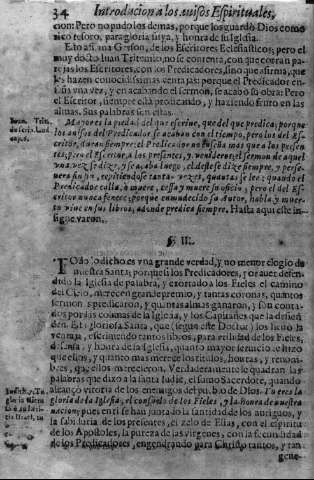 34 Introducion a los auisos Espirituales,
cion: Pero no pudo los demas, porque los guardò Dios como
rico tesoro, para gloria suya, y honra de su Iglesia.
Esto afirma Gerson, de los Escritores Eclesiasticos; pero el
muy docto Iuan Tritemio, no se contenta, con que corran pa-
rejas los Escritores, con los Predicadores, sino que afirma, que
les hazen conocidissimas ventajas: porque el Predicador en-
seña vna vez, y en acabando el sermon, se acabò su obra: Pero
el Escritor, siempre està predicando, y haziendo fruto en las
almas. Sus palabras son estas.
Mayor es la piedad del que escriue, que del que predica; porque
los auisos del Predicador se acaban con el tiempo, pero los del Es-
critor, duran siempre: el Predicador no enseña mas que a los presen-
tes; pero el Escritor, a los presentes, y venideros: el sermon de aquel
vna vez se dize, y se acaba luego, el deste se dize siempre, y perse-
uera sin fin, repitiendose tantas vezes, quantas se lee: quando el
Predicador calla, ò muere, cessa y muere su oficio; pero el del Es-
critor nunca fenece; porque enmudecido su Autor, habla, y muer-
to viue en sus libros, adonde predica siempre. Hasta aqui este in-
signe varon.
§ II.
Todo lo dicho es vna grande verdad, y no menor elogio de
nuestra Santa; porque si los Predicadores, por auer defen-
dido la Iglesia de palabra, y exortado a los Fieles el camino
del Cielo, merecen grande premio, y tantas coronas, quantos
sermones predicaron, y quantas almas ganaron, y son conta-
dos por las colunas de la Iglesia, y los Capitanes que la defien-
den. Esta gloriosa Santa, que (segun este Doctor) los lleuò la
ventaja, escriuiendo tantos libros, para vtilidad de los Fieles,
defensa, y honra de la Iglesia, quanto mayor seruicio le hizo
que ellos, y quanto mas merece los titulos, honras, y renom-
bres, que ellos merecieron. Verdaderamente le quadran las
palabras que dixo a la santa Iudic, el sumo Sacerdote, quando
alcançò vitoria de los enemigos del pueblo de Dios. Tu eres la
gloria de la Iglesia, el consuelo de los Fieles, y la honra de nuestra
nacion; pues en ti se han juntado la santidad de los antiguos, y
la sabiduria de los presentes, el zelo de Elias, con el espiritu
de los Apostoles, la pureza de las virgenes, con la fecundidad
de los Predicadores, engendrando para Christo tantos, y tan
gene-